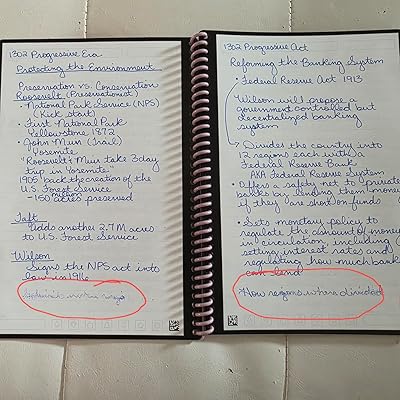 1302 Progressive Era
Protecting the Environment
Preservation vs. Conservation
Roosevelt (Preservationist)
• National Park Service (NPS)
(Kick start)
• First National Park
Yellowstone 1872
• John Muir (Trail)
Yosemite
• Roosevelt & Muir take 3 day
trip in Yosemite
1905 back the creation of the
U.S. Forest Service
- 150 million acres preserved
Taft
Adds another 2.7 M acres
to U.S. Forest Service
Wilson
Signs the NPS act into
law in 1916
1302 Progressive Act
Reforming the Banking System
• Federal Reserve Act 1913
Wilson will propose a
government controlled but
decentralized banking
system
→ Divides the country into
12 regions each with
Federal Reserve Bank
AKA Federal Reserve System
• Offers a safety net to private
banks by lending them money
if they are short on funds
• Sets monetary policy to
regulate the amount of money
in circulation, including
setting interest rates and
regulating how much banks
can lend
How regions where divided